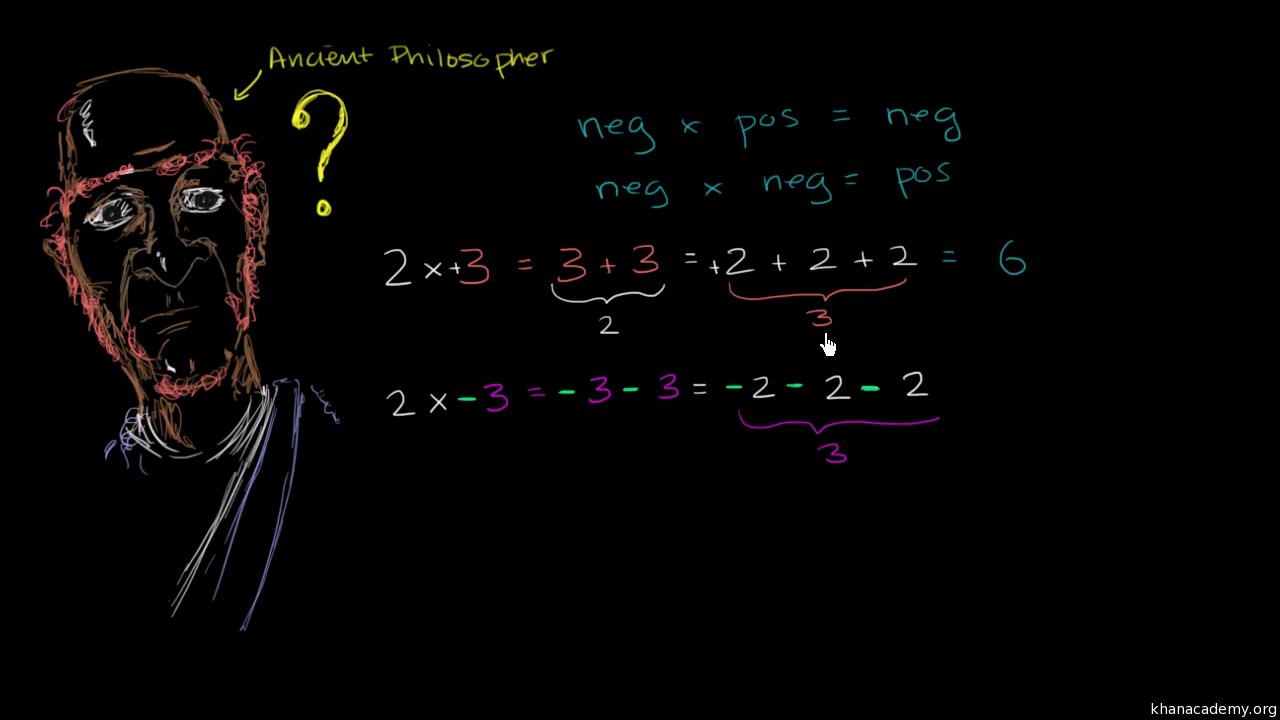 Ancient Philosopher
?
neg x pos = neg
neg x neg = pos
2 x +3 = 3 + 3 = +2 + 2 + 2 = 6
2
3
2 x -3 = -3 - 3 = -2 - 2 - 2
3
khanacademy.org